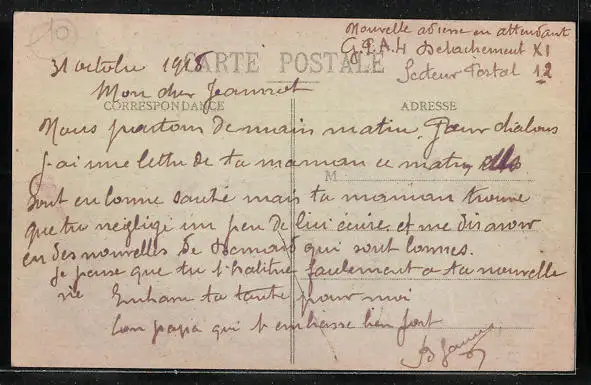 10
Nouvelle adresse en attendant
G.P.A.4 Detachement XI
Secteur Postal 12
31 octobre 1918
CARTE POSTALE
Mon cher Jeannot
CORRESPONDANCE
ADRESSE
Nous partons demain matin pour
j'ai une lettre de ta maman ce matin elles
M
sont en bonne santé mais ta maman trouve
que tu néglige un peu de lui écrire et me dis avoir
eu des nouvelles de Bernard qui sont bonnes.
Je pense que tu t'habitue facilement a ta nouvelle
vie Embrasse ta tante pour moi
Ton papa qui t'embrasse bien fort